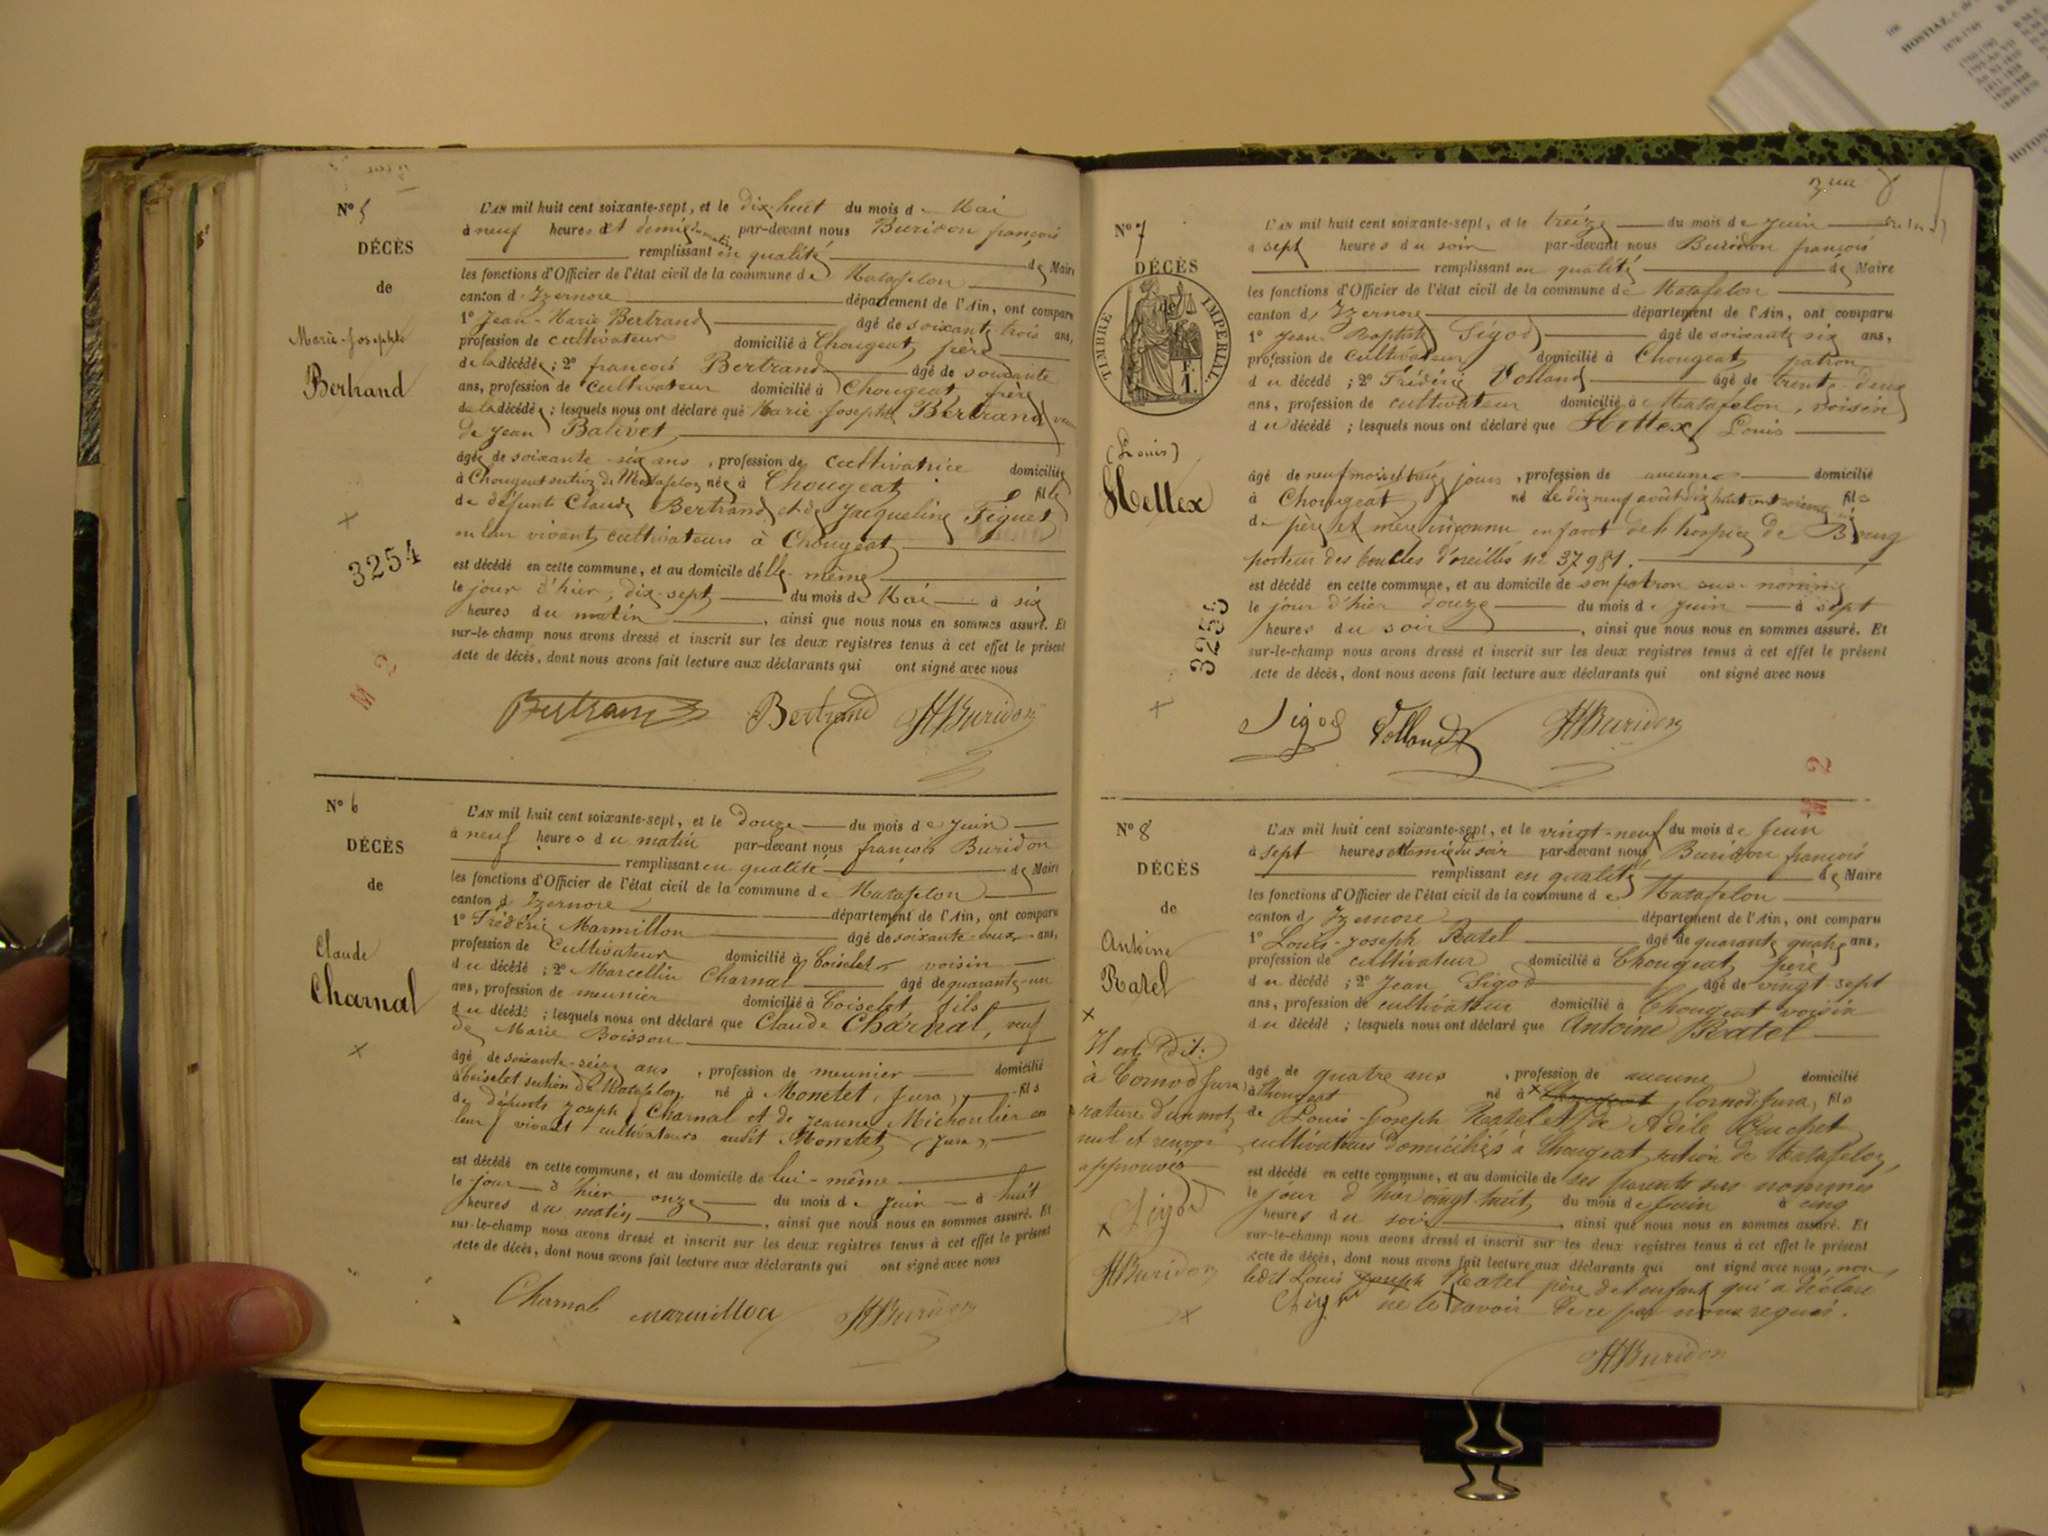 N° 5
DÉCÈS
de
Marie-Josephte
Bertrand
3254
M 2
L'AN mil huit cent soixante-sept, et le dix huit du mois de Mai
à neuf heures et demie du matin par-devant nous Buridon françois
remplissant en qualité de Maire
les fonctions d'Officier de l'état civil de la commune de Matafelon
canton d'Izernore département de l'Ain, ont comparu
1° Jean-Marie Bertrand âgé de soixante trois ans,
profession de cultivateur domicilié à Chougeat, père
de la décédée ; 2° françois Bertrand âgé de soixante
ans, profession de cultivateur domicilié à Chougeat, frère
de la décédée ; lesquels nous ont déclaré que Marie-Josephte Bertrand, veuve
de Jean Balivet,
âgée de soixante-six ans, profession de cultivatrice domiciliée
à Chougeat section de Matafelon née à Chougeat fille
de défunts Claude Bertrand et de Jacqueline Figuet
en leur vivant cultivateurs à Chougeat
est décédé en cette commune, et au domicile d'elle-même
le jour d'hier, dix-sept du mois de Mai à six
heures du matin, ainsi que nous nous en sommes assuré. Et
sur-le-champ nous avons dressé et inscrit sur les deux registres tenus à cet effet le présent
Acte de décès, dont nous avons fait lecture aux déclarants qui ont signé avec nous
Bertrand Bertrand Buridon
N° 6
DÉCÈS
de
Claude
Charnal
L'AN mil huit cent soixante-sept, et le douze du mois de Juin
à neuf heures du matin par-devant nous françois Buridon
remplissant en qualité de Maire
les fonctions d'Officier de l'état civil de la commune de Matafelon
canton d'Izernore département de l'Ain, ont comparu
1° Frédéric Marmillon âgé de soixante-deux ans,
profession de cultivateur domicilié à Coiselet, voisin
du décédé ; 2° Marcellin Charnal âgé de quarante-un
ans, profession de meunier domicilié à Coiselet fils
du décédé ; lesquels nous ont déclaré que Claude Charnal, veuf
de Marie Boisson
âgé de soixante-seize ans, profession de meunier domicilié
à Coiselet section de Matafelon né à Monetet, (Jura), fils
de défunts Joseph Charnal et de Jeanne Michoulier en
leur vivant cultivateurs audit Monetet (Jura),
est décédé en cette commune, et au domicile de lui-même
le jour d'hier onze du mois de Juin à huit
heures du matin, ainsi que nous nous en sommes assuré. Et
sur-le-champ nous avons dressé et inscrit sur les deux registres tenus à cet effet le présent
Acte de décès, dont nous avons fait lecture aux déclarants qui ont signé avec nous
Charnal marmillon Buridon
N° 7
DÉCÈS
de
TIMBRE IMPÉRIAL.
(Louis)
Hettex
3255
L'AN mil huit cent soixante-sept, et le treize du mois de Juin
à sept heures du soir par-devant nous Buridon françois
remplissant en qualité de Maire
les fonctions d'Officier de l'état civil de la commune de Matafelon
canton d'Izernore département de l'Ain, ont comparu
1° Jean Baptiste Sigod âgé de soixante six ans,
profession de cultivateur domicilié à Chougeat, patron
du décédé ; 2° Frédéric Volland âgé de trente-deux
ans, profession de cultivateur domicilié à Matafelon, voisin
du décédé ; lesquels nous ont déclaré que Hettex Louis
âgé de neuf mois et jours, profession de aucune domicilié
à Chougeat né le dix neuf août dix huit cent soixante six fils
de père et mère inconnu enfant de l'hospice de Bourg
porteur des boucles d'oreilles n° 37981.
est décédé en cette commune, et au domicile de son patron sus-nommé
le jour d'hier douze du mois de Juin à sept
heures du soir, ainsi que nous nous en sommes assuré. Et
sur-le-champ nous avons dressé et inscrit sur les deux registres tenus à cet effet le présent
Acte de décès, dont nous avons fait lecture aux déclarants qui ont signé avec nous
Sigod Volland Buridon
M 2
N° 8
DÉCÈS
de
Antoine
Ratel
Il est dit:
à Cornod Jura
rature d'un mot
nul et renvoi
approuvés
Sigod
Buridon
L'AN mil huit cent soixante-sept, et le vingt-neuf du mois de Juin
à sept heures et demie du soir par-devant nous Buridon françois
remplissant en qualité de Maire
les fonctions d'Officier de l'état civil de la commune de Matafelon
canton d'Izernore département de l'Ain, ont comparu
1° Louis-Joseph Ratel âgé de quarante quatre ans,
profession de cultivateur domicilié à Chougeat, père
du décédé ; 2° Jean Sigod âgé de vingt-sept
ans, profession de cultivateur domicilié à Chougeat voisin
du décédé ; lesquels nous ont déclaré que Antoine Ratel
âgé de quatre ans, profession de aucune domicilié
à Chougeat né à Chougeat Cornod, Jura, fils
de Louis-Joseph Ratel et de Adèle
cultivateurs domiciliés à Chougeat section de Matafelon,
est décédé en cette commune, et au domicile de ses parents sus nommés
le jour d'hier vingt huit du mois de Juin à cinq
heures du soir, ainsi que nous nous en sommes assuré. Et
sur-le-champ nous avons dressé et inscrit sur les deux registres tenus à cet effet le présent
Acte de décès, dont nous avons fait lecture aux déclarants qui ont signé avec nous, non
ledit Louis Joseph Ratel père de l'enfant qui a déclaré
ne le savoir de ce par nous requis.
Buridon